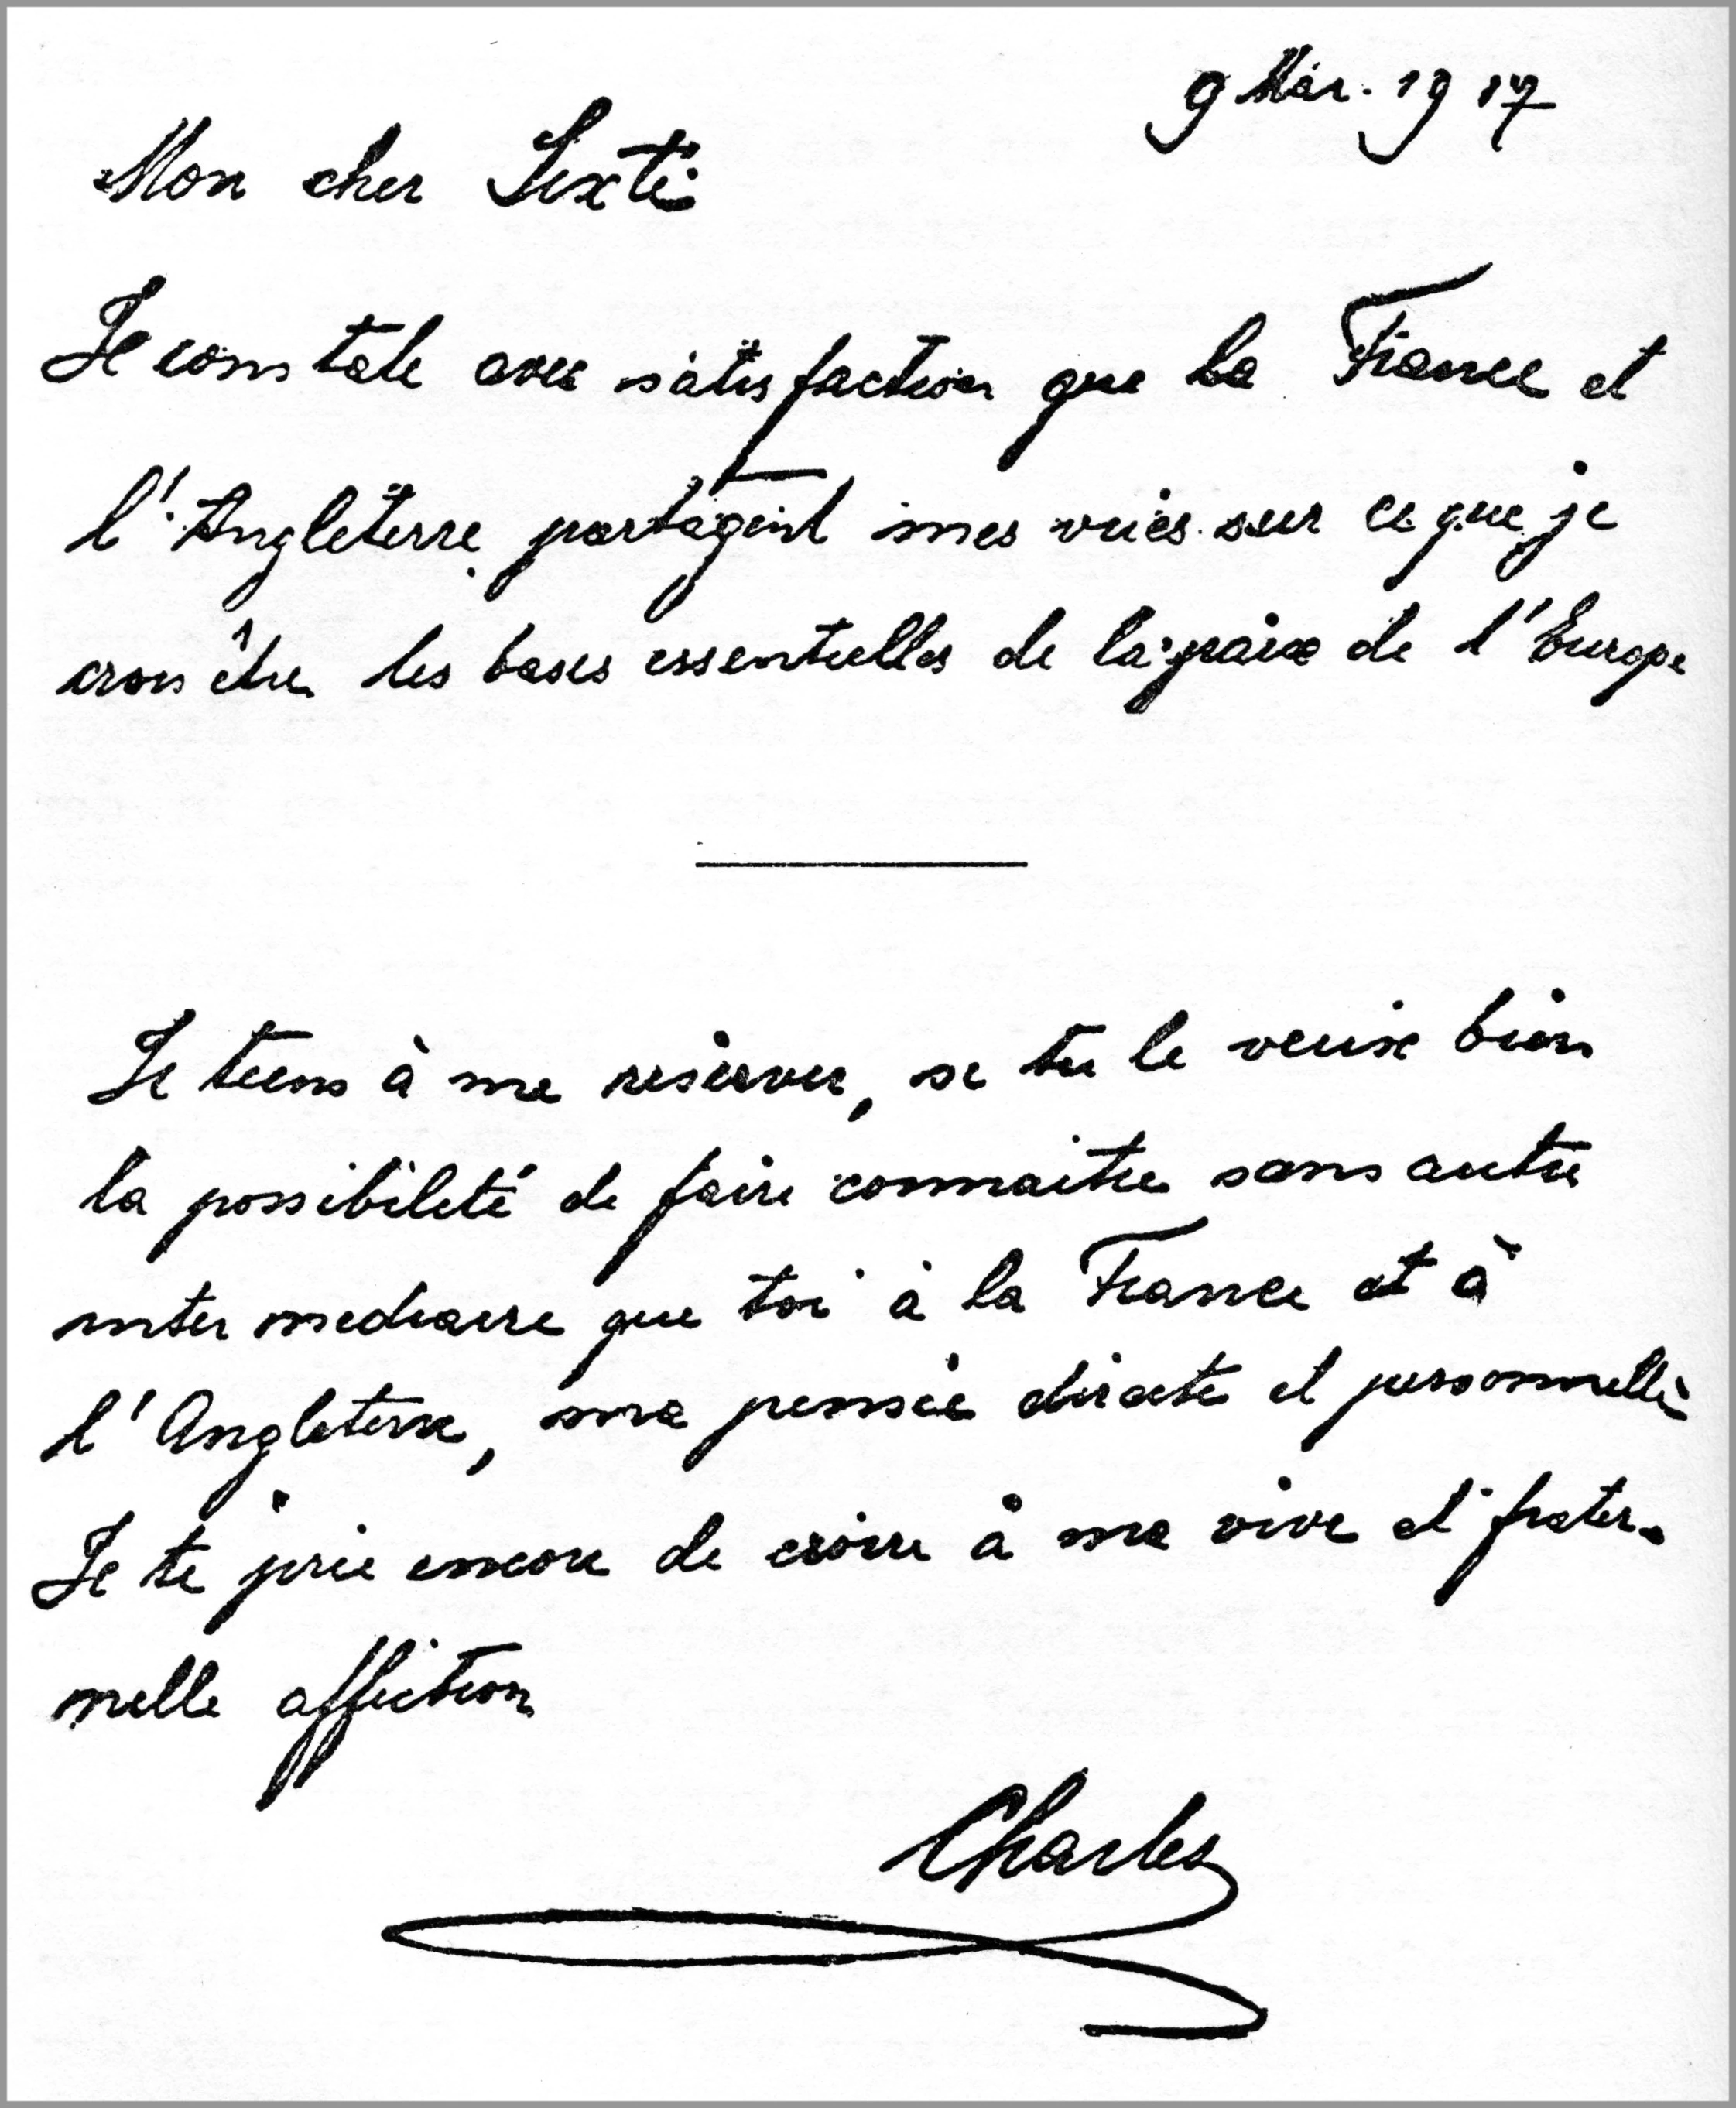 9 Mar. 1917
Mon cher Sixte
Je constate avec satisfaction que la France et
l'Angleterre partagent mes vues sur ce que je
crois être les bases essentielles de la paix de l'Europe
Je tiens à me réserver, si tu le veux bien
la possibilité de faire connaitre sans autre
intermediaire que toi à la France et à
l'Angleterre, ma pensée directe et personnelle
Je te prie encore de croire à ma vive et frater-
nelle affection
Charles